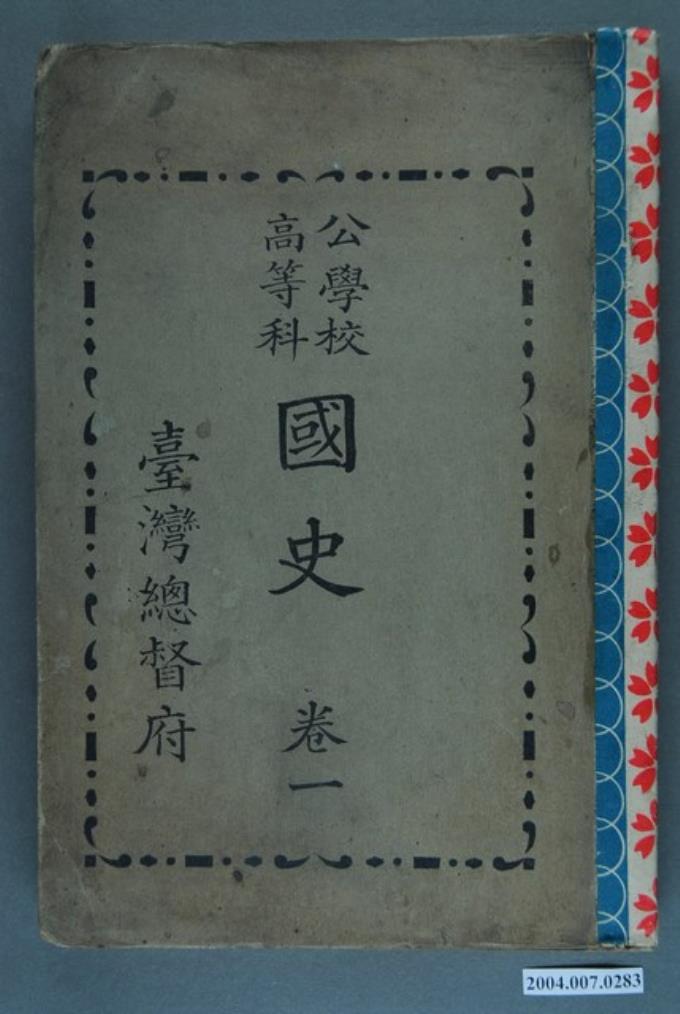 公學校
高等科
國史
卷一
臺灣總督府
2004.007.0283